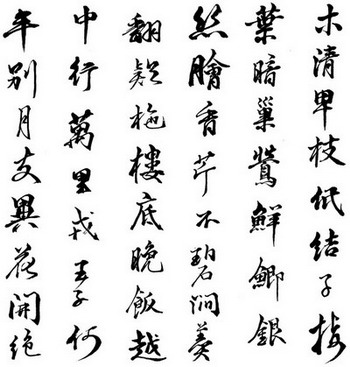 木清卑枝低結子接
葉暗巢鶯鮮鯽銀
絲膾香芹不碧澗羹
翻疑柂樓底晚飯越
中行萬里戎王子何
年別月支異花開絕